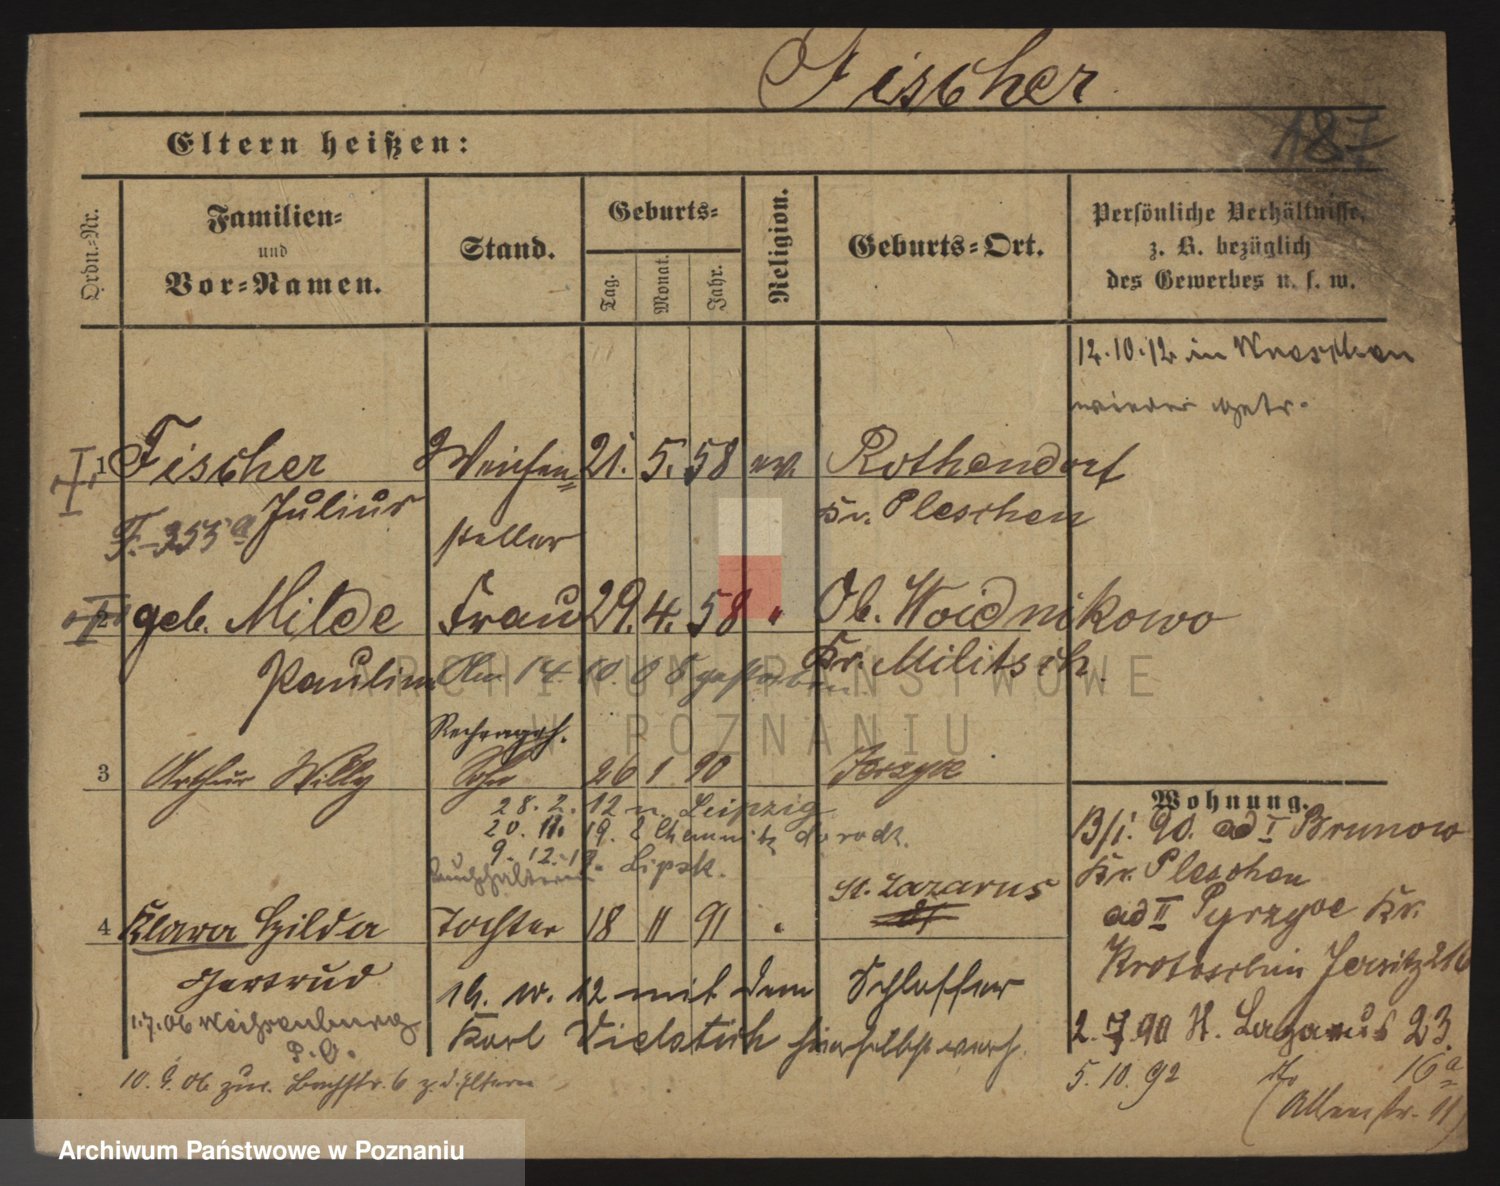 Fischer
187
Eltern heißen:
Ordn.-Nr.
Familien-
und
Vor-Namen.
Stand.
Geburts-
Tag.
Monat.
Jahr.
Religion.
Geburts-Ort.
Persönliche Verhältnisse,
z. B. bezüglich
des Gewerbes u. s. w.
12.10.12 in Wreschen
wieder getr.
I 1 Fischer Weichen= 21. 5. 58 ev Rothendorf
Julius steller Kr. Pleschen
F. 353 a
II 2 geb. Milde Frau 29. 4. 58 " Ob. Woidnikowo
Pauline Am 14. 10. 08 gestorben. Kr. Militsch.
3 Arthur Willy Sohn 26 1 90
28. 2. 12 n. Leipzig
20. 11. 19. Chemnitz
9. 12. 19. Lipsk.
Buchhalterin
St. Lazarus
4 Klara Hilda Tochter 18 11 91 "
Gertrud
16. 10. 12 mit dem Schlosser
Karl Vielstich hierselbst verh.
1.7.06
10. 9. 06 zur. Bachstr. 6 z. d. Eltern
Wohnung.
Bis 90. ad I Brunow
Kr. Pleschen
ad II Kr.
Krotoschin Jersitz 216
2. 7. 90 St. Lazarus 23.
5. 10. 92 16a
ARCHIWUM PAŃSTWOWE
W POZNANIU
Archiwum Państwowe w Poznaniu